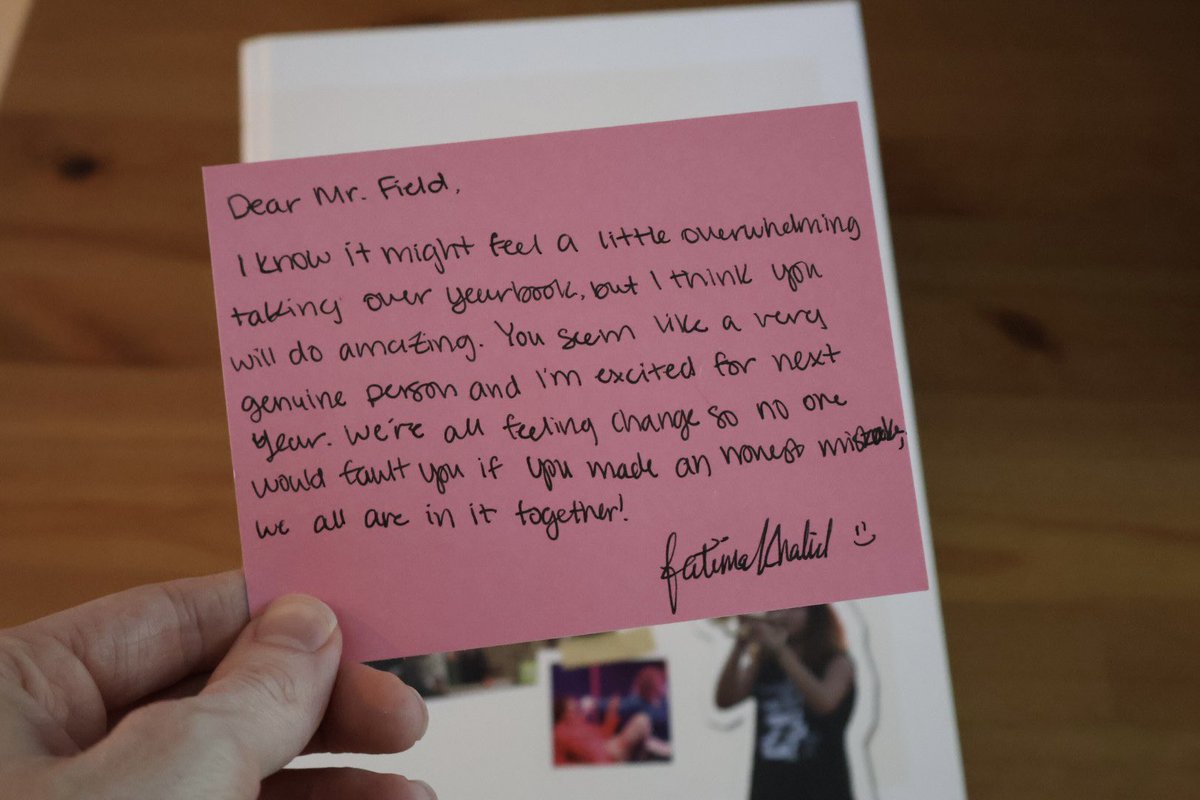 Dear Mr. Field,
I know it might feel a little overwhelming
taking over yearbook, but I think you
will do amazing. You seem like a very
genuine person and I'm excited for next
year. We're all feeling change so no one
would fault you if you made an honest mistake,
we all are in it together!
Fatima Khalid